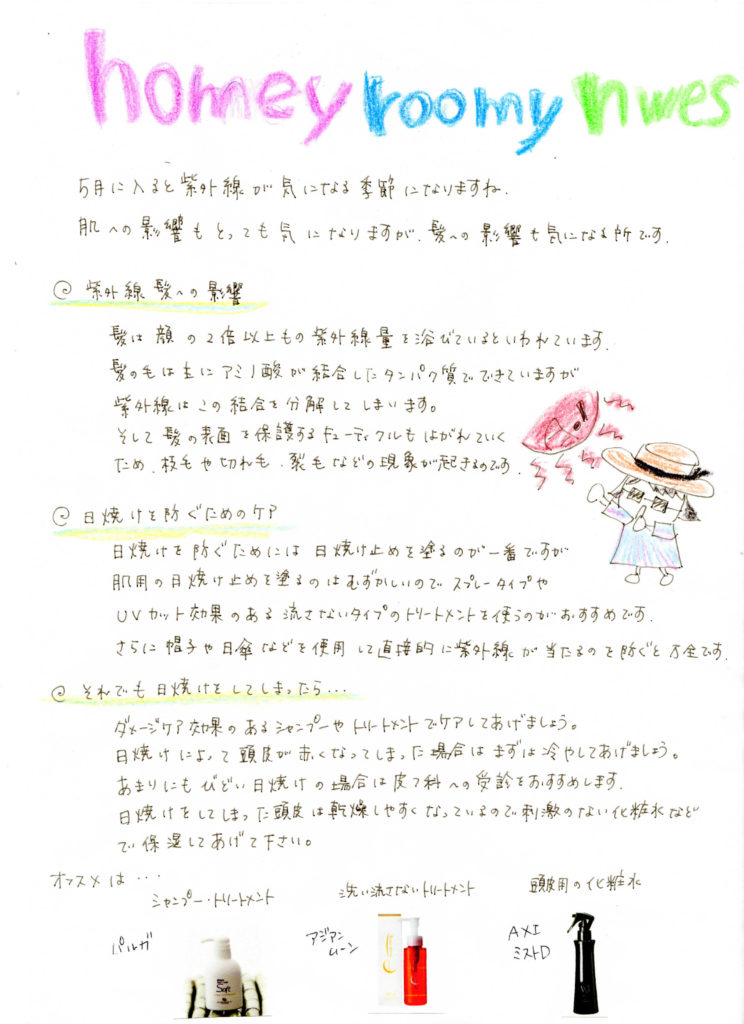 homey roomy nwes
5月に入ると紫外線が気になる季節になりますね.
肌への影響もとっても気になりますが、髪への影響も気になる所です.
◎ 紫外線髪への影響
髪は顔の2倍以上もの紫外線量を浴びているといわれています.
髪の毛は主にアミノ酸が結合したタンパク質でできていますが
紫外線はこの結合を分解してしまいます。
そして髪の表面を保護するキューティクルもはがれていく
ため、枝毛や切れ毛、裂毛などの現象が起きるのです.
◎ 日焼けを防ぐためのケア
日焼けを防ぐためには日焼け止めを塗るのが一番ですが
肌用の日焼け止めを塗るのはむずかしいので スプレータイプや
UVカット効果のある流さないタイプのトリートメントを使うのがおすすめです.
さらに帽子や日傘などを使用して直接的に紫外線が当たるのを防ぐと万全です.
◎ それでも日焼けをしてしまったら...
ダメージケア効果のあるシャンプーやトリートメントでケアしてあげましょう。
日焼けによって頭皮が赤くなってしまった場合はまずは冷やしてあげましょう。
あまりにもひどい日焼けの場合は皮フ科への受診をおすすめします.
日焼けをしてしまった頭皮は乾燥しやすくなっているので刺激のない化粧水など
で保湿してあげて下さい。
オススメは...
シャンプー・トリートメント
洗い流さないトリートメント
頭皮用の化粧水
パルガ
アジアン
ムーン
AXI
ミストD
Soft